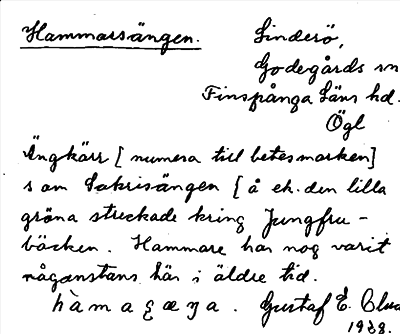 Hammarsängen. Sinderö,
Godegårds sn
Finspånga Läns hd.
Ögl
Ängkärr [numera till betesmarken]
som Sakrisängen [å ek. den lilla
gröna streckade kring Jungfru-
bäcken. Hammare har nog varit
någonstans här i äldre tid.
Gustaf E.
1928.